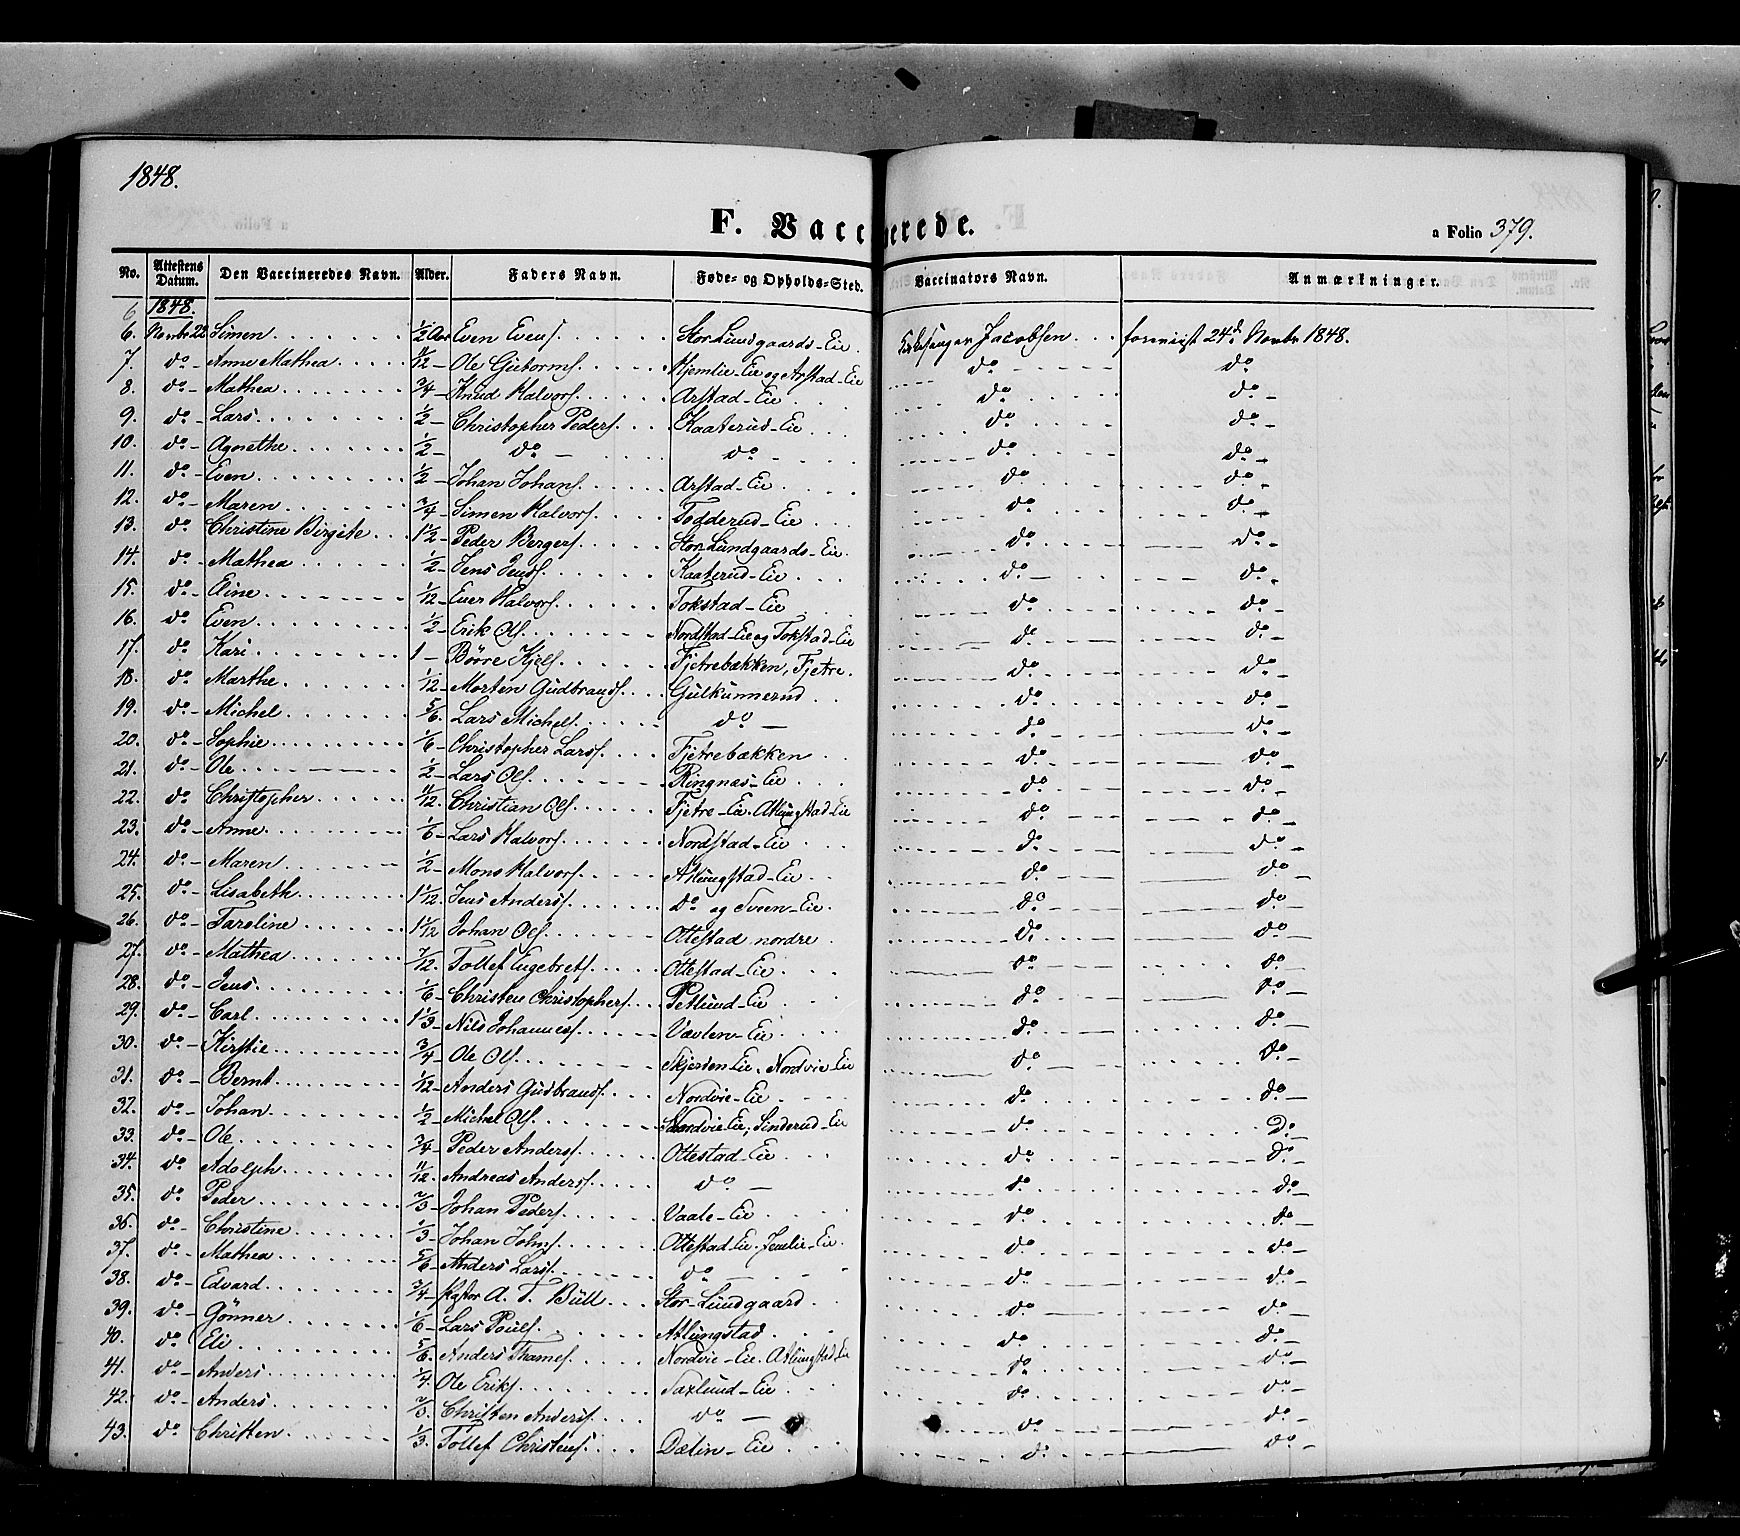 1848.
F. Vaccinerede.
a Folio 379.
No. Attestens Datum. Den Vaccineredes Navn. Alder. Faders Navn. Føde- og Opholds-Sted. Vaccinators Navn. Anmærkninger.
6 1848.
6. Novbr 22 Simen ½ Aar Even Evens. Stor Lundgaards-Eie. Kirkesanger Jacobsen forevist 24d Novbr 1848.
7. do- Anne Mathea /12 Ole Guttorms. Hjemlie-Eie og Arstad-Eie do do
8. do- Mathea ¾- Knud Halvors. Arstad-Eie do do-
9. do- Lars ½- Christopher Peders. Kaaterud-Eie do do-
10. do- Agnethe ½- do- do- do do-
11. do- Even ½- Johan Johans. Arstad-Eie do do-
12. do- Maren ¾- Simen Halvors. Todderud-Eie do do-
13. do Christine Birgite 1½- Peder Bergers. Stor Lundgaards-Eie. do do-
14. do- Mathea ½- Jens Jens. Kaaterud-Eie do- do-
15. do- Eline 1/12- Even Halvors. Tokstad-Eie do do-
16. do- Even ½- Erik Ols. Nordstad-Eie og Tokstad-Eie do- do-
17. do Kari 1- Børre Kjels. Fjetrebakken, Fjetre. do do-
18. do- Marthe 1/12- Morten Gudbrands. Gulkunnerud do do-
19. do- Michel 5/6- Lars Michels. do- do do-
20. do- Sophie 1/6- Christopher Lars. Fjetrebakken do do-
21. do- Ole ½- Lars Ols. Ringnæs-Eie do do-
22. do- Christopher 11/12- Christian Ols. Fjetre-Eie. Atlungstad-Eie do do-
23. do- Anne 1/6- Lars Halvors. Nordstad-Eie do- do-
24. do- Maren ½- Mons Halvors. Atlungstad-Eie do- do-
25. do- Lisabeth 1 1/12. Jens Anders. do og Sveen-Eie. do do-
26. do- Taroline 1 1/12 Johan Ols. Ottestad nordre do do-
27. do- Mathea 7/12. Tollef Engebrets. Ottestad-Eie do- do-
28. do- Jens 1/6- Christen Christophers. Petlund-Eie do do-
29. do- Carl 1 1/3- Nils Johannes. Vævlen-Eie do- do-
30. do- Kirstie ¾- Ole Ols. Skjerden Eie. Nordvie-Eie do do-
31. do- Bernt 1/12- Anders Gudbrands. Nordvie-Eie do do-
32. do- Johan ½- Michel Ols. Nordvie Eie; Sinderud-Eie do Do-
33. do- Ole ¾- Peder Anders. Ottestad-Eie do do-
34. do Adolph 11/12. Andreas Anders. do- do do-
35. do Peder 2/3- Johan Peders. Vaale-Eie do do-
36. do- Christine 1/3- Johan Johns. Ottestad-Eie. Jemlie-Eie. do do-
37. do- Mathea 5/6- Anders Lars. do- do do-
38. do- Edvard ¾- Pastor A. T. Bull Stor-Lundgaard do do-
39. do- Gønner 1/6- Lars Pouls. Atlungstad do do-
40. do Eli 5/6. Anders Thames. Nordvie-Eie. Atlungstad-Eie do do-
41. do- Anders ¼. Ole Eriks. Saxlund-Eie do do-
42. do- Anders 2/3. Christen Anders. do- do do-
43. do Christen 1/3. Tollef Christens. Dælin-Eie do do-